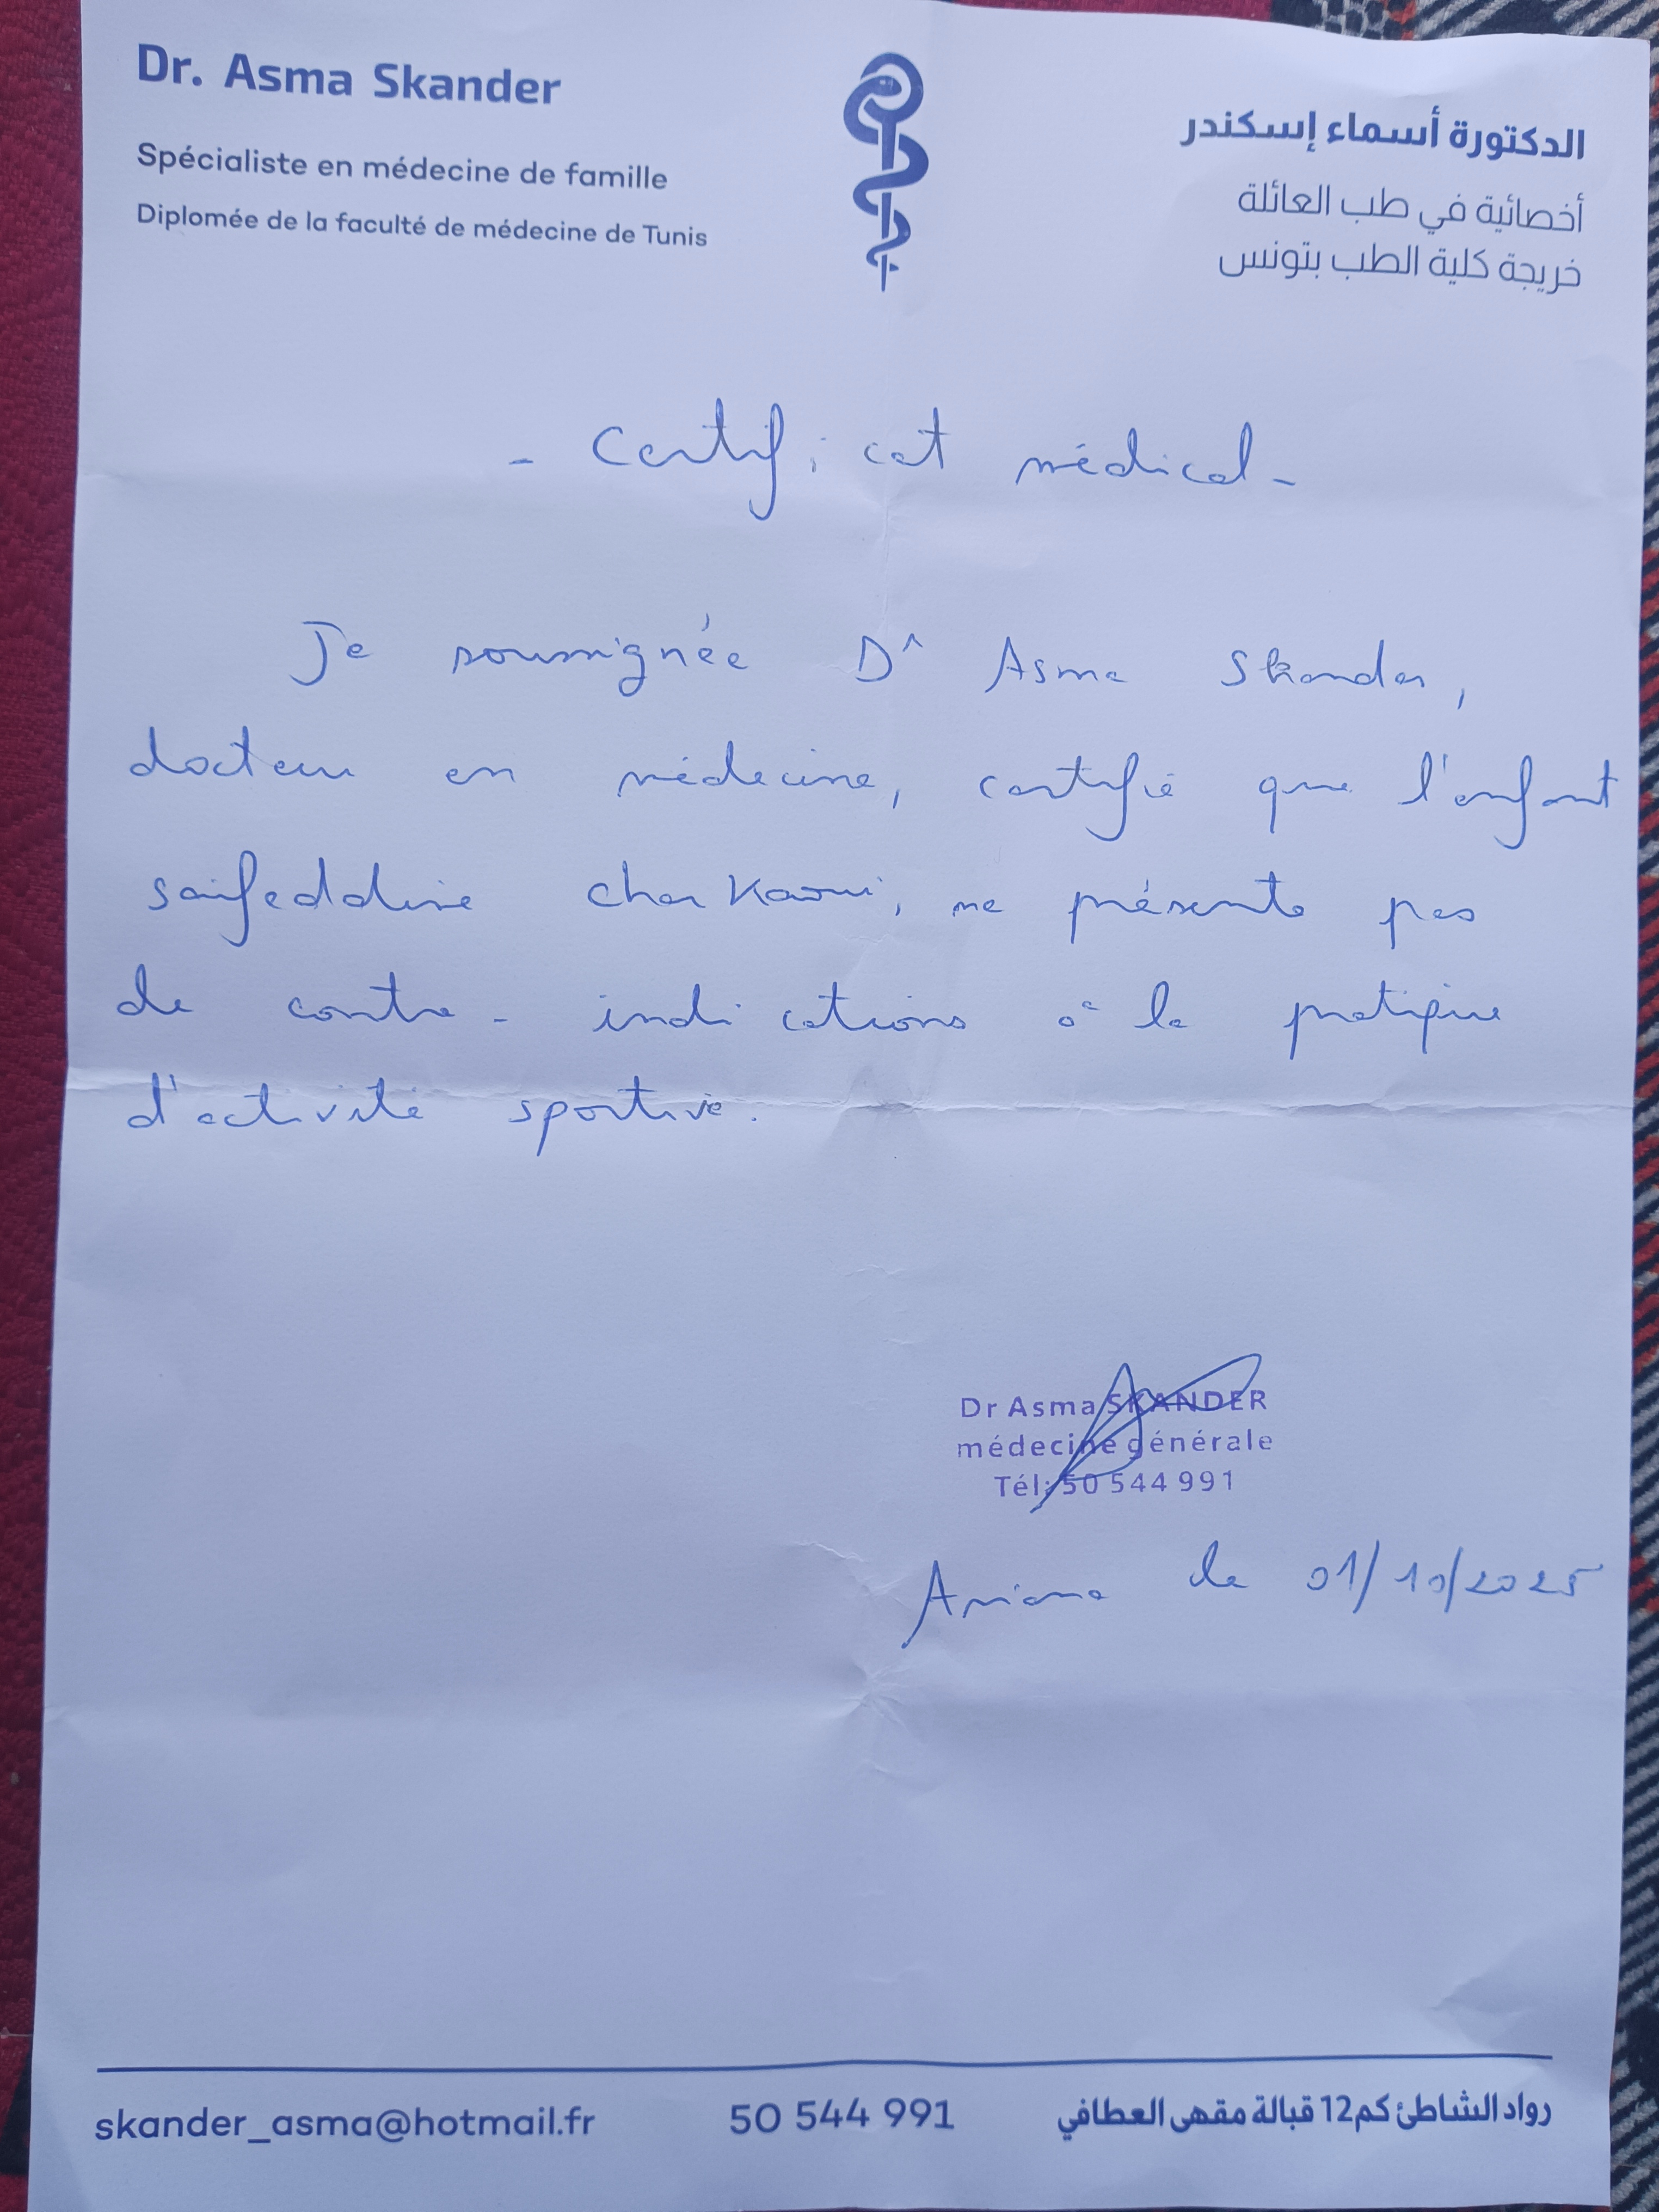 Dr. Asma Skander
Spécialiste en médecine de famille
Diplomée de la faculté de médecine de Tunis
الدكتورة أسماء إسكندر
أخصائية في طب العائلة
خريجة كلية الطب بتونس
- Certificat médical -
Je soussignée Dr Asma Skander,
docteur en médecine, certifie que l'enfant
saifeddine cherkaoui, ne présente pas
de contre-indications à la pratique
d'activité sportive.
Dr Asma SKANDER
médecine générale
Tél: 50 544 991
Ariana le 01/10/2025
skander_asma@hotmail.fr
50 544 991
رواد الشاطئ كم12 قبالة مقهى العطافي